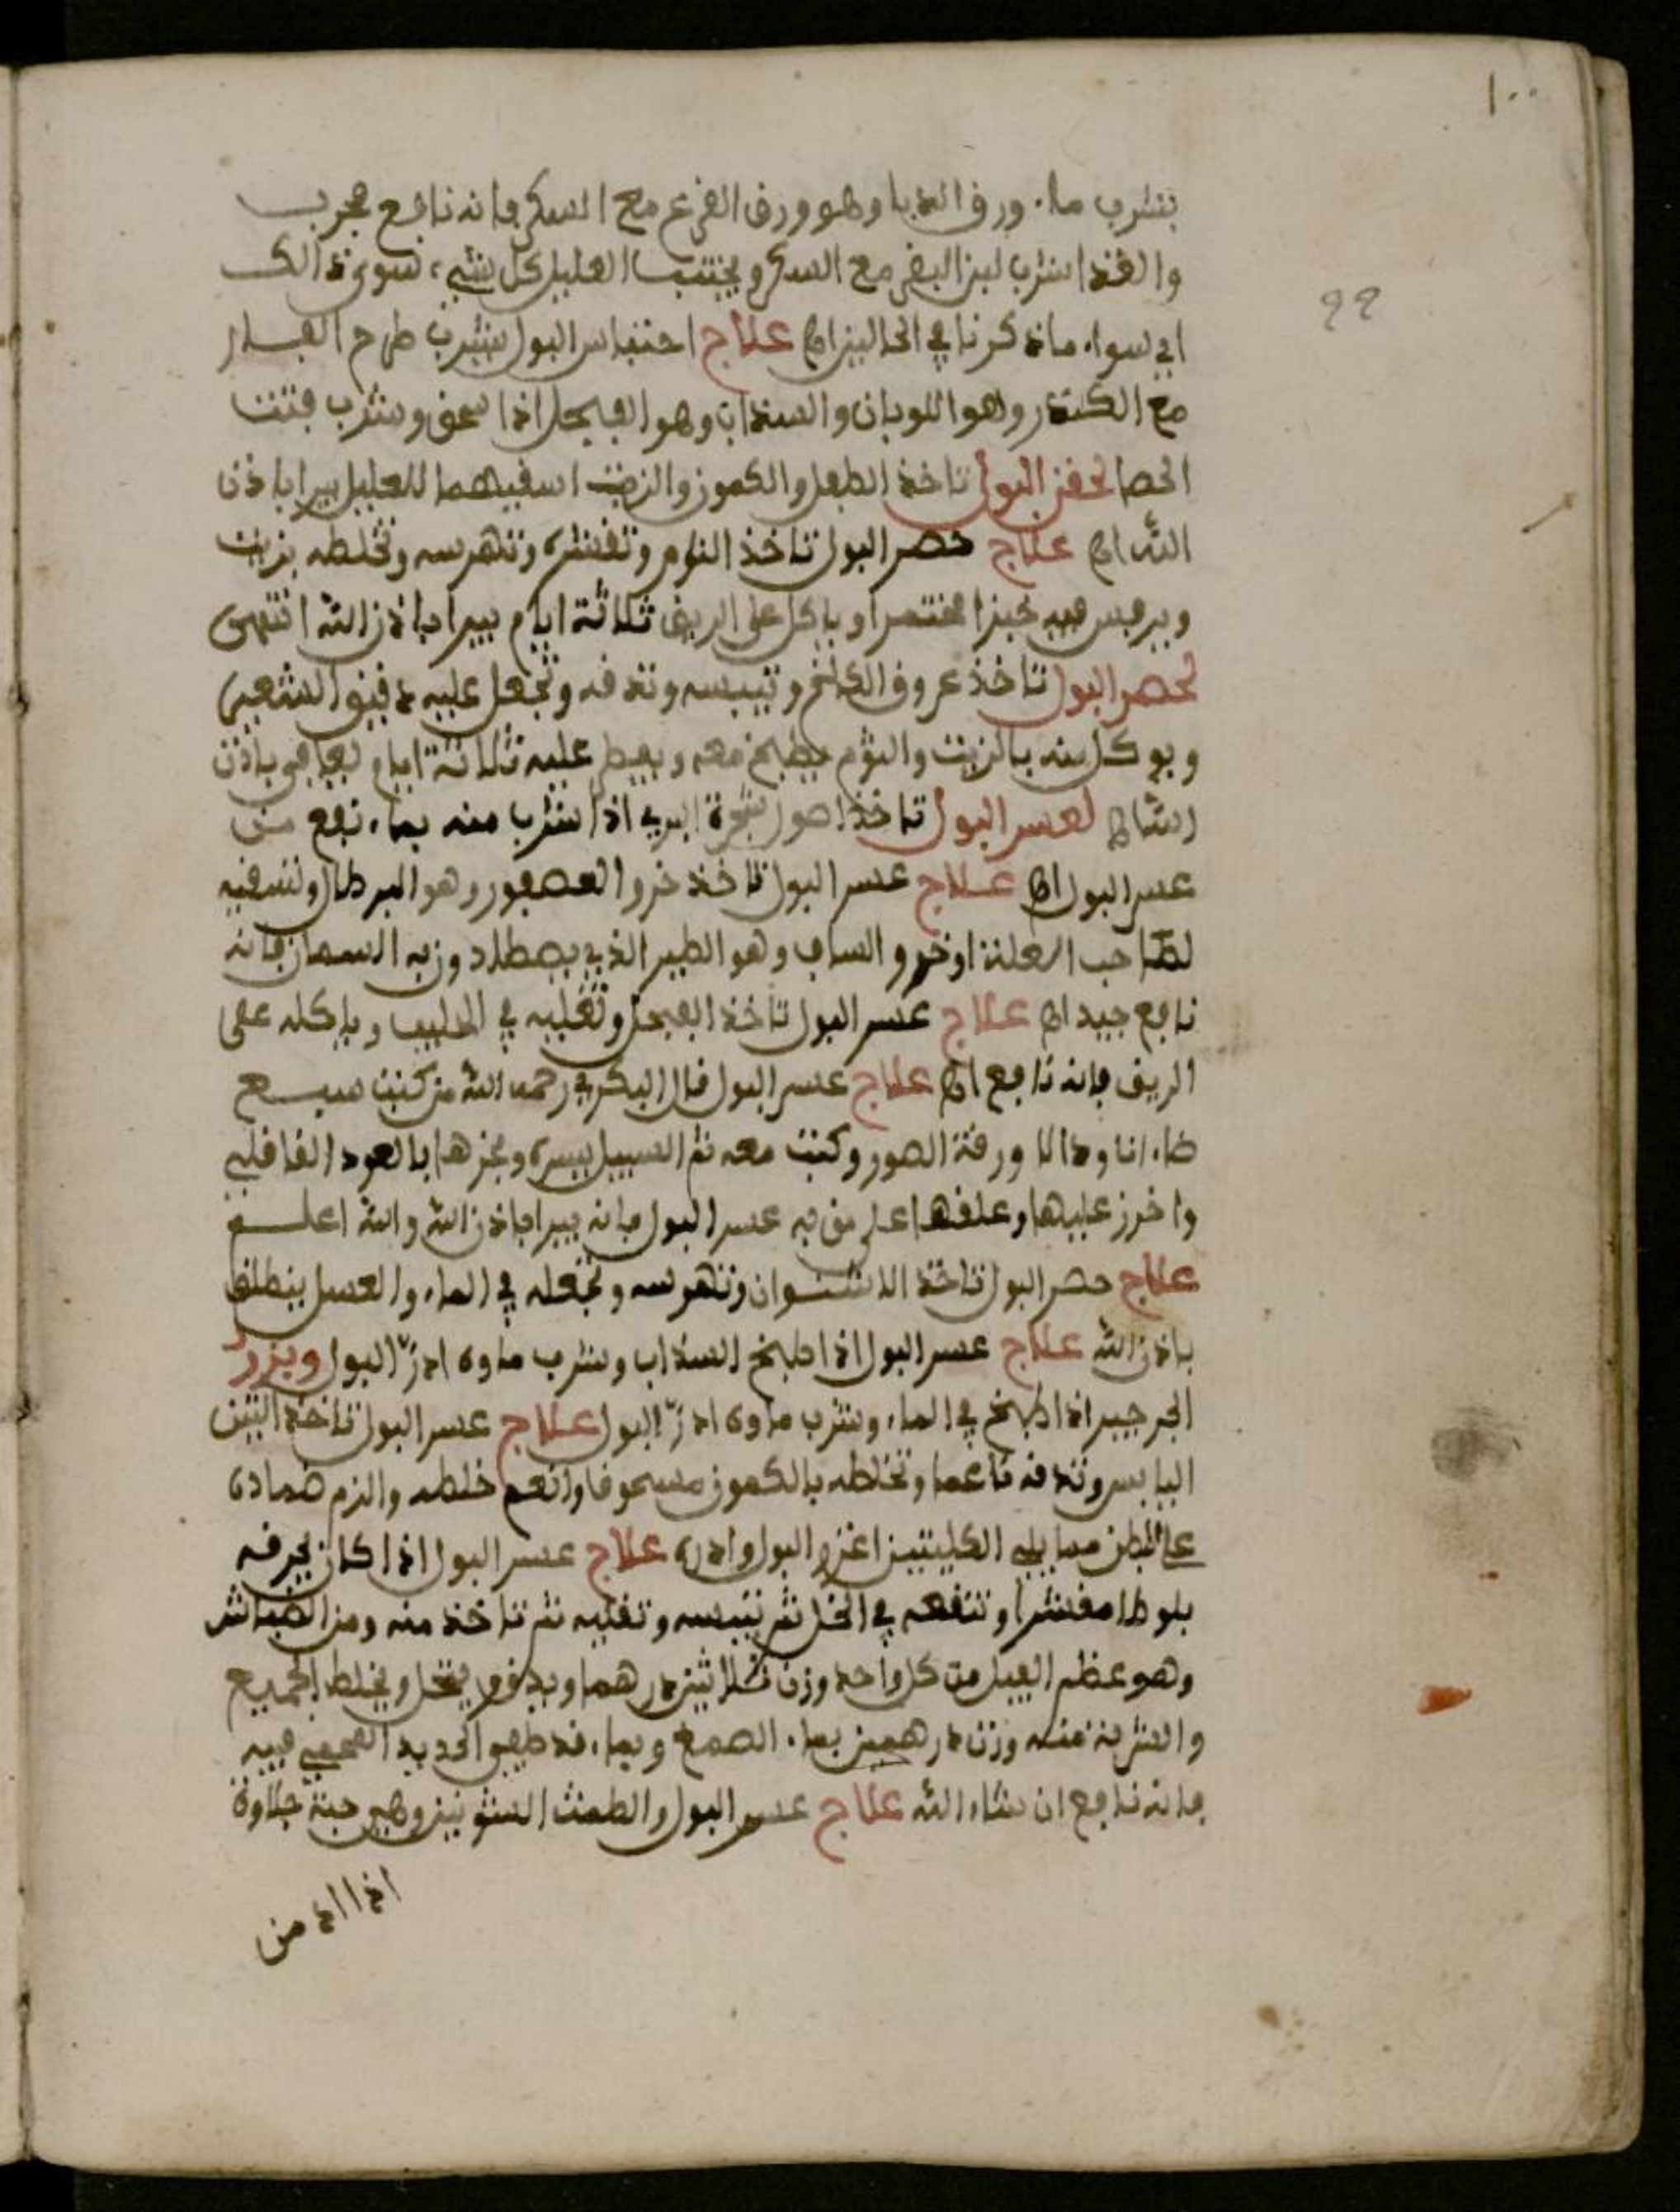 ١٠٠
بشرب ماء ورق الدبا وهو ورق القرع مع السكر فانه نافع مجرب
والغذا شرب لبن البقر مع السكر ويجتنب العليل كل شيء سوى ذالك
اي سواء ماذكرنا في الحالين اه علاج احتباس البول يشرب طرح الفار
99
مع الكندر وهو اللوبان والسذاب وهو الفيجل اذا سحق وشرب فتت
الحصا لحقن البول تاخذ الطفل والكمون والزيت اسقيهما للعليل يبرا باذن
الله اه علاج حصر البول تاخذ الثوم وتقشره وتهرسه وتخلطه بزيت
ويرمس فيه خبزا مختمرا وياكل على الريق ثلاثة ايام يبرا باذن الله انتهى
لحصر البول تاخذ عروق الكلخ وتيبسه وتدقه وتجعل عليه دقيق الشعير
ويوكل منه بالزيت والثوم يطبخ معه ويفطر عليه ثلاثة ايام يعافى باذن
الله اه لعسر البول تاخذ اصول شجرة البري اذا شرب منه بماء نفع من
عسر البول اه علاج عسر البول تاخذ خرو العصفور وهو البرطال وتسقيه
لصاحب العلة او خرو الساف وهو الطير الذي يصطاد وزبه السمان فانه
نافع جيد اه علاج عسر البول تاخذ الفيجل وتغليه في الحليب وياكله على
الريق فانه نافع اه علاج عسر البول قال البكري رحمه الله من كتب سبع
ضاءانا ودالا ورقة الصور وكتب معه ثم السبيل يسره وبخرها بالعود القاقلي
واخرز عليها وعلقها على من به عسر البول فانه يبرا باذن الله والله اعلم
علاج حصر البول تاخذ الاشوان وتهرسه وتجعله في الماء والعسل ينطلق
باذن الله علاج عسر البول اذا طبخ السذاب وشرب ماوه ادرّ البول وبزر
الجرجير اذا طبخ في الماء وشرب ماوه ادرّ البول علاج عسر البول تاخذ التين
اليابس وتدقه ناعما وتخلطه بالكمون مسحوقا وانعم خلطه والزم ضماده
على البطن مما يلي الكليتين اغزر البول وادره علاج عسر البول اذا كان بحرقه
بلوطا مقشرا وتنقعه في الخل ثم تيبسه وتقليه ثم تاخذ منه ومن الطباشر
وهو عظم الفيل من كل واحد وزن ثلاثين درهما ويدق وينخل ويخلط الجميع
والشربة منه وزن درهمين بماء الصمغ وبماء قد طفي الحديد المحمي فيه
فانه نافع ان شاء الله علاج عسر البول والطمث الشونيز وهي حبة حلاوة
اذا ادمن